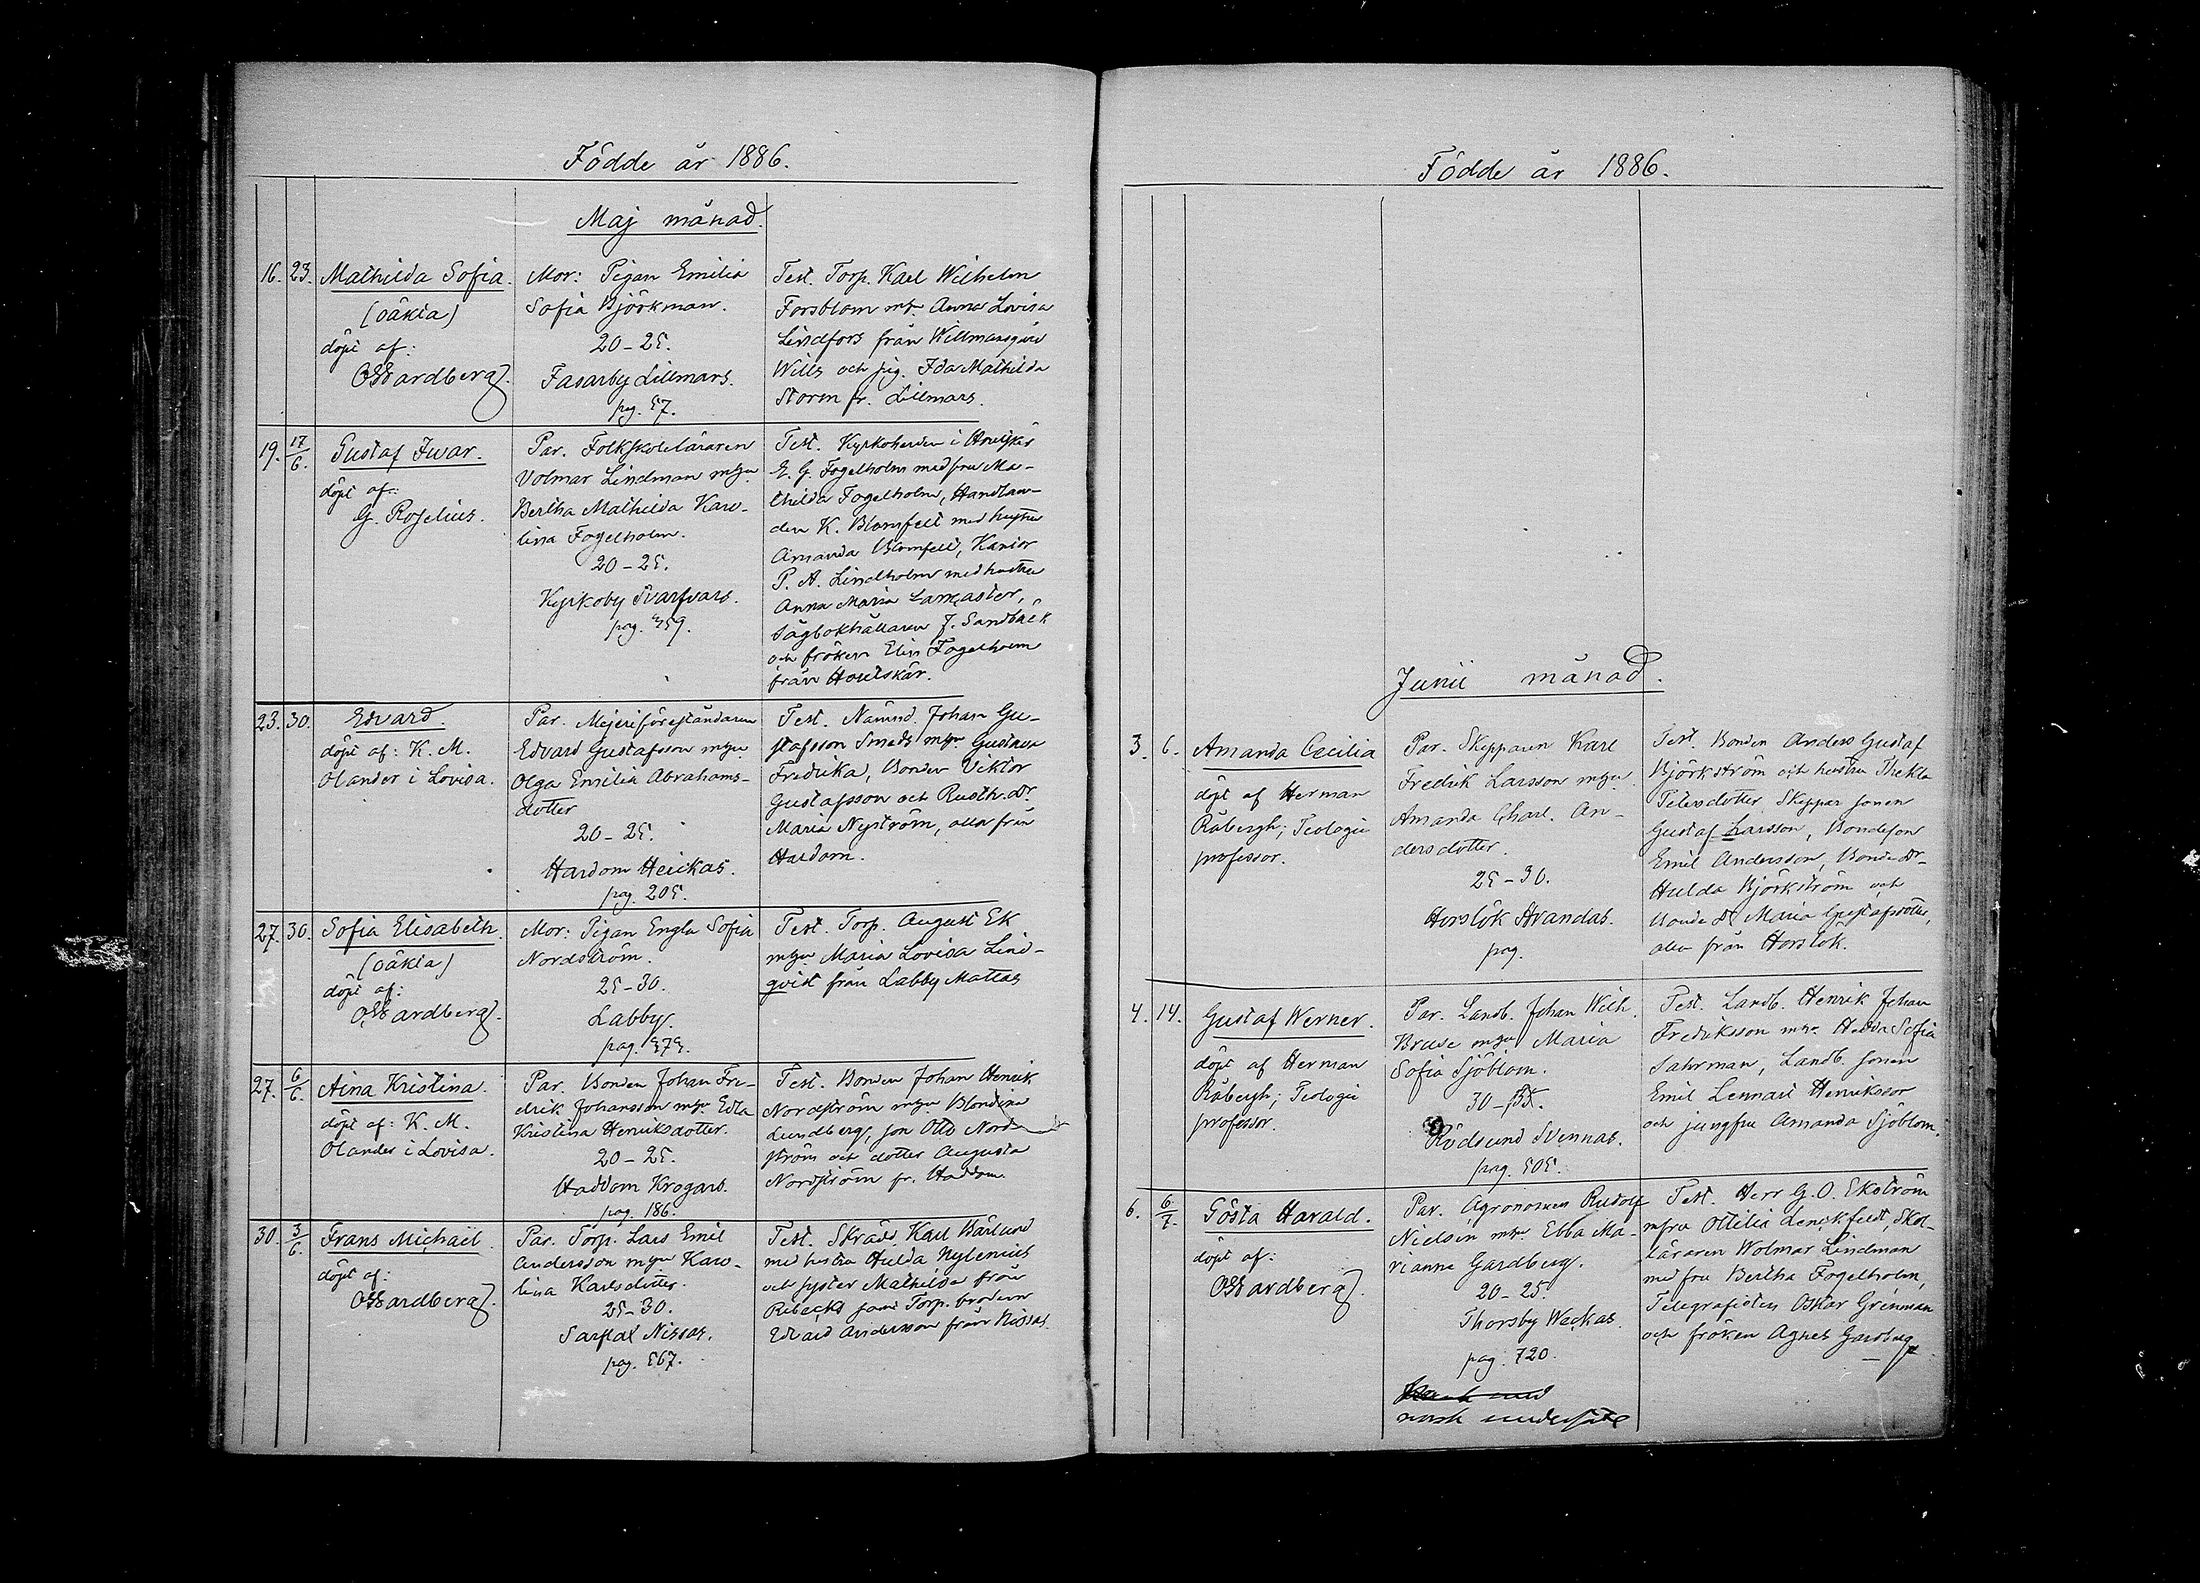 Födde år 1886.
Maj månad.
16. 23. Mathilda Sofia.
(oäkta)
döpt af:
Gardberg.
Mor: Pigan Emilia
Sofia Björkman.
20-25.
Fasarby Lillmars.
pag. 57.
Test. Torp. Karl Wilhelm
Forsblom m. Anna Lovisa
Lindfors från Willmansgård
Wills och pig. Ida Mathilda
Storm fr. Lillmars.
19. 17/6. Gustaf Ivar.
döpt af:
G. Roselius.
Par. Folkskoleläraren
Volmar Lindman m
Bertha Mathilda Karo-
lina Fogelholm.
20-25.
Kyrkoby Svarfvars.
pag. 459.
Test. Kyrkoherden i Houtskär
G. G. Fogelholm med fru Ma-
thilda Fogelholm, Handlan-
den K. Blomfelt med hustru
Amanda Blomfelt, Kantor
P. A. Lindholm med hustru
Anna Maria Lancaster,
Sågbokhållaren J. Sandbäck
och fröken Elin Fogelholm
från Houtskär.
23. 30. Edvard.
döpt af: K. M.
Olander i Lovisa.
Par. Mejeriföreståndaren
Edvard Gustafsson m
Olga Emilia Abrahams-
dotter
20-25.
Hardom Heickas.
pag. 205.
Test. Nämnd. Johan Gu-
stafsson Smeds m Gustava
Fredrika, Bonden Viktor
Gustafsson och Rusth. dr.
Maria Nyström, alla från
Hardom.
27. 30. Sofia Elisabeth.
(oäkta)
döpt af:
Gardberg.
Mor: Pigan Engla Sofia
Nordström.
25-30.
Labby.
pag. 575.
Test. Torp. August Ek
m Maria Lovisa Lind-
qvist från Labby Mattas
27. 6/6. Aina Kristina.
döpt af: K. M.
Olander i Lovisa.
Par. Bonden Johan Fre-
drik Johansson m Edla
Kristina Henriksdotter.
20-25.
Haddom Krogars.
pag. 186.
Test. Bonden Johan Henrik
Nordström m Blondina
Lundberg, son Otto Nord-
ström och dotter Augusta
Nordström fr. Haddom.
30. 3/6. Frans Michail.
döpt af:
Gardberg.
Par. Torp. Lars Emil
Andersson m Karo-
lina Karlsdotter.
25-30.
Sarflax Nissas.
pag. 567.
Test. Skrädd. Karl Bärlund
med hustru Hulda Nylenius
och syster Mathilda från
Ribacka samt Torp. brodern
Edvard Andersson från Nissas.
Födde år 1886.
Junii månad.
3. 6. Amanda Cecilia
döpt af Herman
Råbergh; Teologie
professor.
Par. Skepparen Karl
Fredrik Larsson m
Amanda Charl. An-
dersdotter.
25-30.
Horslök Strandas.
pag.
Test. Bonden Anders Gustaf
Björkström och hustru Thekla
Petersdotter Skeppar sonen
Gustaf Larsson, Bondeson
Emil Andersson, Bonde dr.
Hulda Björkström och
Bonde dr. Maria Gustafsdotter,
alla från Horslök.
4. 14. Gustaf Werner.
döpt af Herman
Råbergh; Teologie
professor.
Par. Landb. Johan Wilh.
Bruse m Maria
Sofia Sjöblom.
30-35.
Rödsund Svennas.
pag. 505.
Test. Landb. Henrik Johan
Fredriksson m Hedda Sofia
Sahrman, Landb. sonen
Emil Lennart Henriksson
och jungfru Amanda Sjöblom.
6. 6/7. Gösta Harald.
döpt af:
Gardberg.
Par. Agronomen Rudolf
Nielsén m Ebba Ma-
rianne Gardberg.
20-25.
Thorsby Wackas.
pag. 720.
norsk undersåte
Test. Herr G. O. Ekström
m fru Ottilia Lenckfeldt, Skol-
läraren Wolmar Lindman
med fru Bertha Fogelholm,
Telegrafisten Oskar Grénman
och fröken Agnes Gardberg